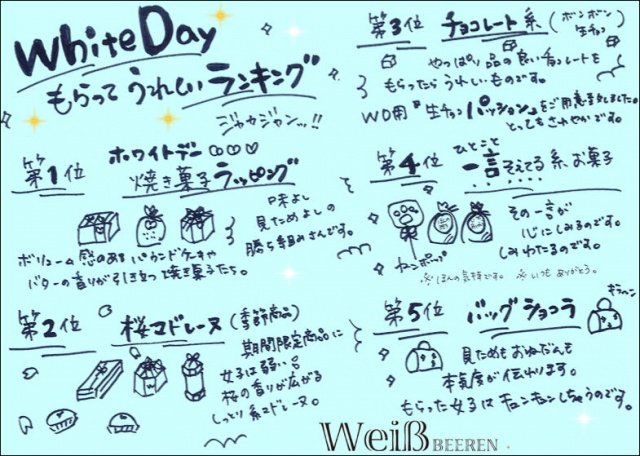 White Day
もらってうれしいランキング
ジャカジャンッ!!
第1位 ホワイトデー♡♡♡
焼き菓子ラッピング
味よし
見ためよしの
勝ち組みさんです。
ボリューム感のあるパウンドケーキや
バターの香りが引き立つ焼き菓子たち。
第2位 桜マドレーヌ(季節商品)
期間限定商品に
女子は弱い品
桜の香りが広がる
しっとり系マドレーヌ。
第3位 チョコレート系(ボンボン
生チョコ)
やっぱり品の良いチョコレートを
もらったらうれしいものです。
WD用『生チョコパッション』をご用意致しました。
とってもさわやかです。
第4位 一言そえてる系お菓子
ひとこと
その一言が
心にしみるのです。
しみわたるのです。
※ほんの気持です。 ※いつもありがとう。
第5位 バッグショコラ
キラーン
見ためもおねだんも
本気度が伝わります。
もらった女子はキュンキュンしちゃうのです。
Weiß BEEREN